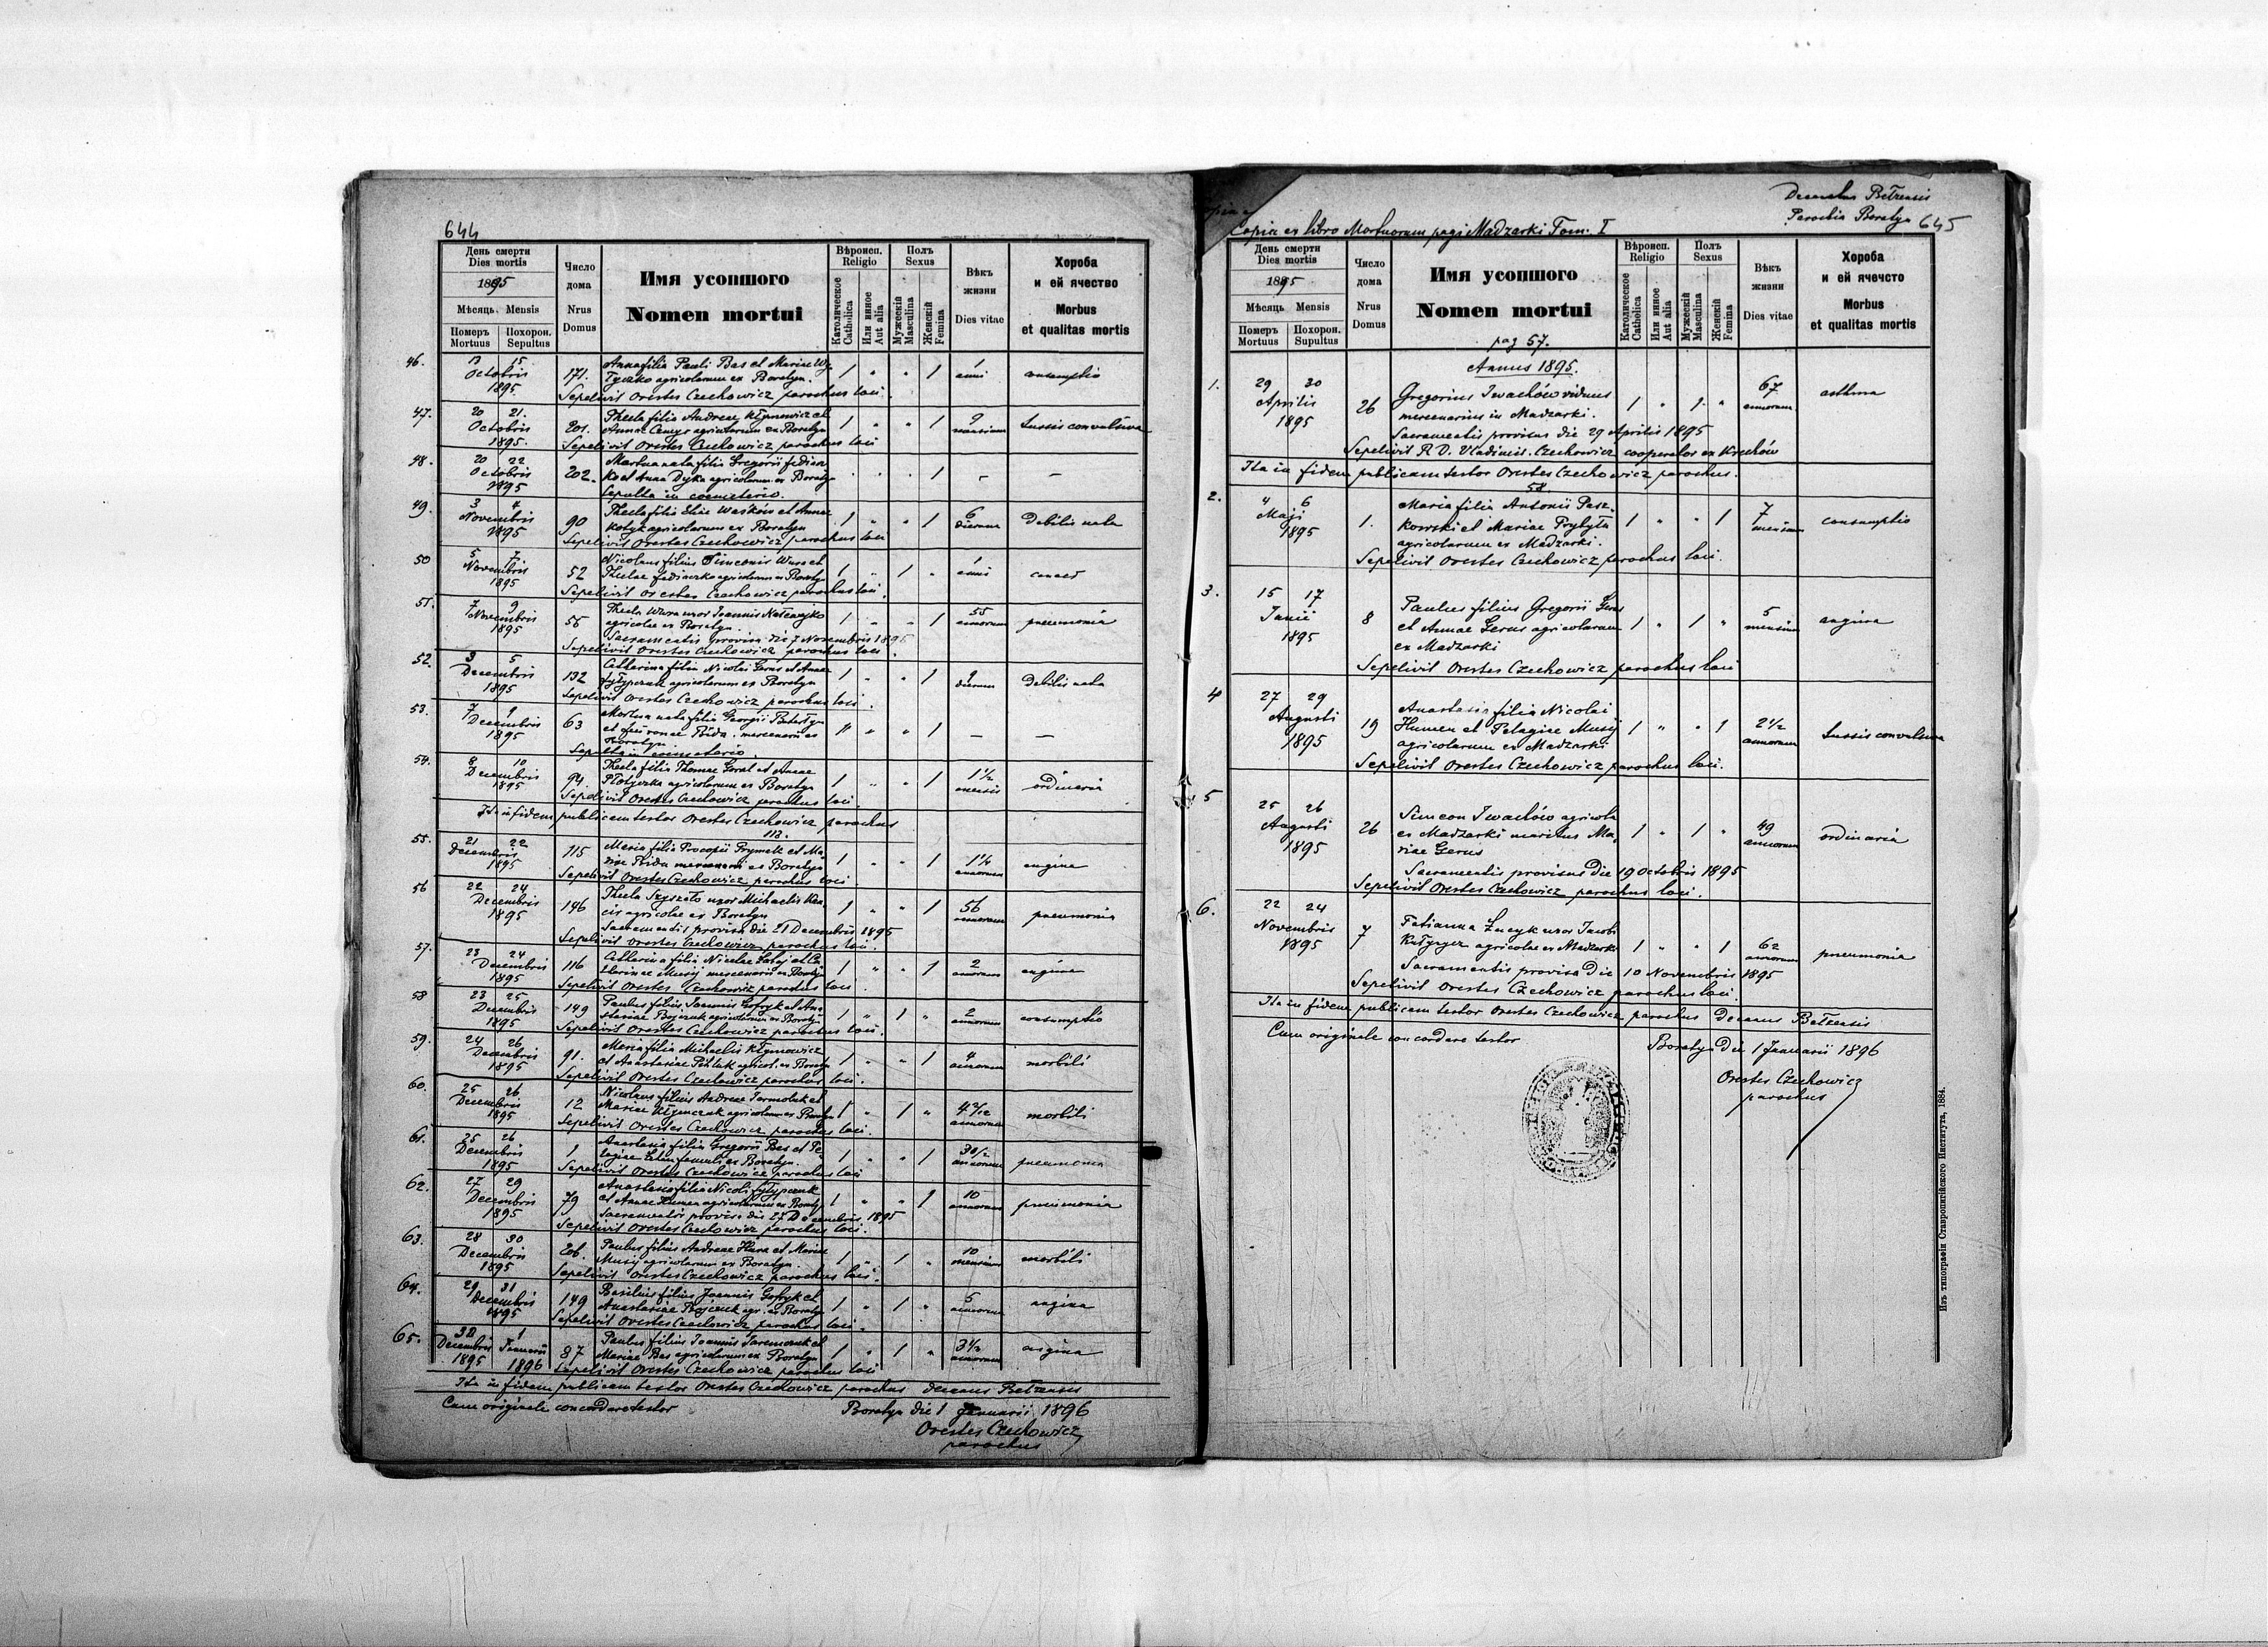 644
День смерти
Dies mortis
1895
Мѣсяць Mensis
Померъ Mortuus
Похорон. Sepultus
Число дома
Nrus Domus
Имя усопшого
Nomen mortui
Вѣроисп.
Religio
Католическое Catholica
Или инное Aut alia
Полъ
Sexus
Мужескій Masculina
Женскій Femina
Вѣкъ жизни
Dies vitae
Хороба
и ей ячество
Morbus
et qualitas mortis
46. 13 15 Octobris 1895 171.
Anna filia Pauli Bas et Mariae
agricolarum ex Boratyn.
1 " " 1 1 anni consumptio
Sepelivit Orestes Czechowicz parochus loci.
47. 20 21. Octobris 1895. 201.
Thecla filia Andreae Kłymowicz et
Annae agricolarum ex Boratyn
1 " " 1 9 mensium tussis convulsiva
Sepelivit Orestes Czechowicz parochus loci
48. 20 22 Octobris 1895 202.
Mortua nata filia Gregorii
et Anna Dyka agricolarum ex Boratyn
1 – –
Sepulta in coemeterio.
49. 3 4 Novembris 1895 90
Thecla filia Eliae Waśków et Annae
Kotyk agricolarum ex Boratyn
1 " " 1 6 dierum debilis nata
Sepelivit Orestes Czechowicz parochus loci
50 5 7 Novembris 1895 52
Nicolaus filius Simeonis et
Theclae agricolarum ex Boratyn
1 " 1 " 1 anni
Sepelivit Orestes Czechowicz parochus loci.
51. 7 9 Novembris 1895 55
Thecla uxor Joannis
agricolae ex Boratyn.
1 " " 1 55 annorum pneumonia
Sacramentis provisa die 7 Novembris 1895
Sepelivit Orestes Czechowicz parochus loci.
52. 3 5 Decembris 1895 132
Catharina filia Nicolai Gerus et Annae
agricolarum ex Boratyn
1 " " 1 9 dierum debilis nata
Sepelivit Orestes Czechowicz parochus loci.
53. 7 9 Decembris 1895 63
Mortua nata filia Georgii
et mercenarii ex
Boratyn.
" " " 1 – –
Sepulta in coemeterio.
54. 8 10 Decembris 1895 94.
Thecla filia Thomae Goral et Annae
agricolarum ex Boratyn
1 " " 1 1½ mensis ordinaria
Sepelivit Orestes Czechowicz parochus loci.
Ita in fidem publicam testor Orestes Czechowicz parochus
113.
55. 21 22 Decembris 1895 115
Maria filia Procopii Prymak et Ma-
riae mercenarii ex Boratyn
1 " " 1 1¼ annorum angina
Sepelivit Orestes Czechowicz parochus loci.
56 22 24 Decembris 1895 146
Thecla uxor Michaelis
agricolae ex Boratyn
1 " " 1 56 annorum pneumonia
Sacramentis provisa die 21 Decembris 1895
Sepelivit Orestes Czechowicz parochus loci.
57. 23 24 Decembris 1895 116
Catharina filia Nicolai et Ca-
tharinae Musij mercenarii ex Boratyn
1 " " 1 2 annorum angina
Sepelivit Orestes Czechowicz parochus loci.
58 23 25 Decembris 1895 149
Paulus filius Joannis et Ana-
stasiae Bojczuk agricolarum ex Boratyn
1 " 1 " 2 annorum consumptio
Sepelivit Orestes Czechowicz parochus loci.
59. 24 26 Decembris 1895 91.
Maria filia Michaelis Kłymowicz
et Anastasiae agricol. ex Boratyn
1 " " 1 4 annorum morbili
Sepelivit Orestes Czechowicz parochus loci.
60. 25 26 Decembris 1895 12
Nicolaus filius Andreae Jarmoluk et
Mariae agricolarum ex Boratyn
1 " 1 " annorum morbili
Sepelivit Orestes Czechowicz parochus loci.
61. 25 26 Decembris 1895 1
Anastasia filia Gregorii Bas et Pe-
lagiae famuli ex Boratyn.
1 " " 1 annorum pneumonia
Sepelivit Orestes Czechowicz parochus loci
62. 27 29 Decembris 1895 79
Anastasia filia Nicolai
et Annae Humen agricolarum ex Boratyn
1 " " 1 10 annorum pneumonia
Sacramentis provisa die 27 Decembris 1895
Sepelivit Orestes Czechowicz parochus loci.
63. 28 30 Decembris 1895 206.
Paulus filius Andreae et Mariae
Musij agricolarum ex Boratyn.
1 " 1 " 10 mensium morbili
Sepelivit Orestes Czechowicz parochus loci.
64. 29 31 Decembris 1895 149
Basilius filius Joannis et
Anastasiae Bojczuk agr. ex Boratyn
1 " 1 " 5 annorum angina
Sepelivit Orestes Czechowicz parochus loci.
65. Decembris 1895 1 Januarii 1896 87
Paulus filius Joannis et
Mariae Bas agricolarum ex Boratyn
1 " 1 " 3½ annorum angina
Sepelivit Orestes Czechowicz parochus loci
Ita in fidem publicam testor Orestes Czechowicz parochus decanus Bełzensis
Cum originale concordare testor
Boratyn die 1 Januarii 1896
Orestes Czechowicz
parochus
Decanatus Bełzensis
Parochia Boratyn 645
Copia ex libro Mortuorum pagi Madzarki Tom. I
День смерти
Dies mortis
1895
Мѣсяць Mensis
Померъ Mortuus
Похорон. Supultus
Число дома
Nrus Domus
Имя усопшого
Nomen mortui
pag 57.
Вѣроисп.
Religio
Католическое Catholica
Или инное Aut alia
Полъ
Sexus
Мужескій Masculina
Женскій Femina
Вѣкъ жизни
Dies vitae
Хороба
и ей ячечсто
Morbus
et qualitas mortis
Annus 1895.
1. 29 30 Aprilis 1895 26
Gregorius Iwachów viduus
mercenarius in Madzarki.
1 " 1 " 67 annorum asthma
Sacramentis provisus die 29 Aprilis 1895
Sepelivit R. D. Vladimir. Czechowicz cooperator ex
Ita in fidem publicam testor Orestes Czechowicz parochus.
58.
2. 4 6 Maji 1895 1.
Maria filia Antonii Pasz-
kowski et Mariae Prybyła
agricolarum ex Madzarki.
1 " " 1 7 mensium consumptio
Sepelivit Orestes Czechowicz parochus loci.
3. 15 17 Junii 1895 8
Paulus filius Gregorii Gerus
et Annae Gerus agricolarum
ex Madzarki
1 " 1 " 5 mensium angina
Sepelivit Orestes Czechowicz parochus loci
4 27 29 Augusti 1895 19
Anastasia filia Nicolai
Humen et Pelagiae Musij
agricolarum ex Madzarki
1 " " 1 2½ annorum tussis convulsiva
Sepelivit Orestes Czechowicz parochus loci.
5 25 26 Augusti 1895 26
Simeon Iwachów agricola
ex Madzarki maritus Ma-
riae Gerus
1 " 1 " 49 annorum ordinaria
Sacramentis provisus die 19 Octobris 1895
Sepelivit Orestes Czechowicz parochus loci.
6. 22 24 Novembris 1895 7
Tatianna uxor Jacobi
agricolae ex Madzarki
1 " " 1 62 annorum pneumonia
Sacramentis provisa die 10 Novembris 1895
Sepelivit Orestes Czechowicz parochus loci.
Ita in fidem publicam testor Orestes Czechowicz parochus decanus Bełzensis
Cum originale concordare testor
Boratyn die 1 Januarii 1896
Orestes Czechowicz
parochus
Изъ типографіи Ставропигійского Института, 1884.